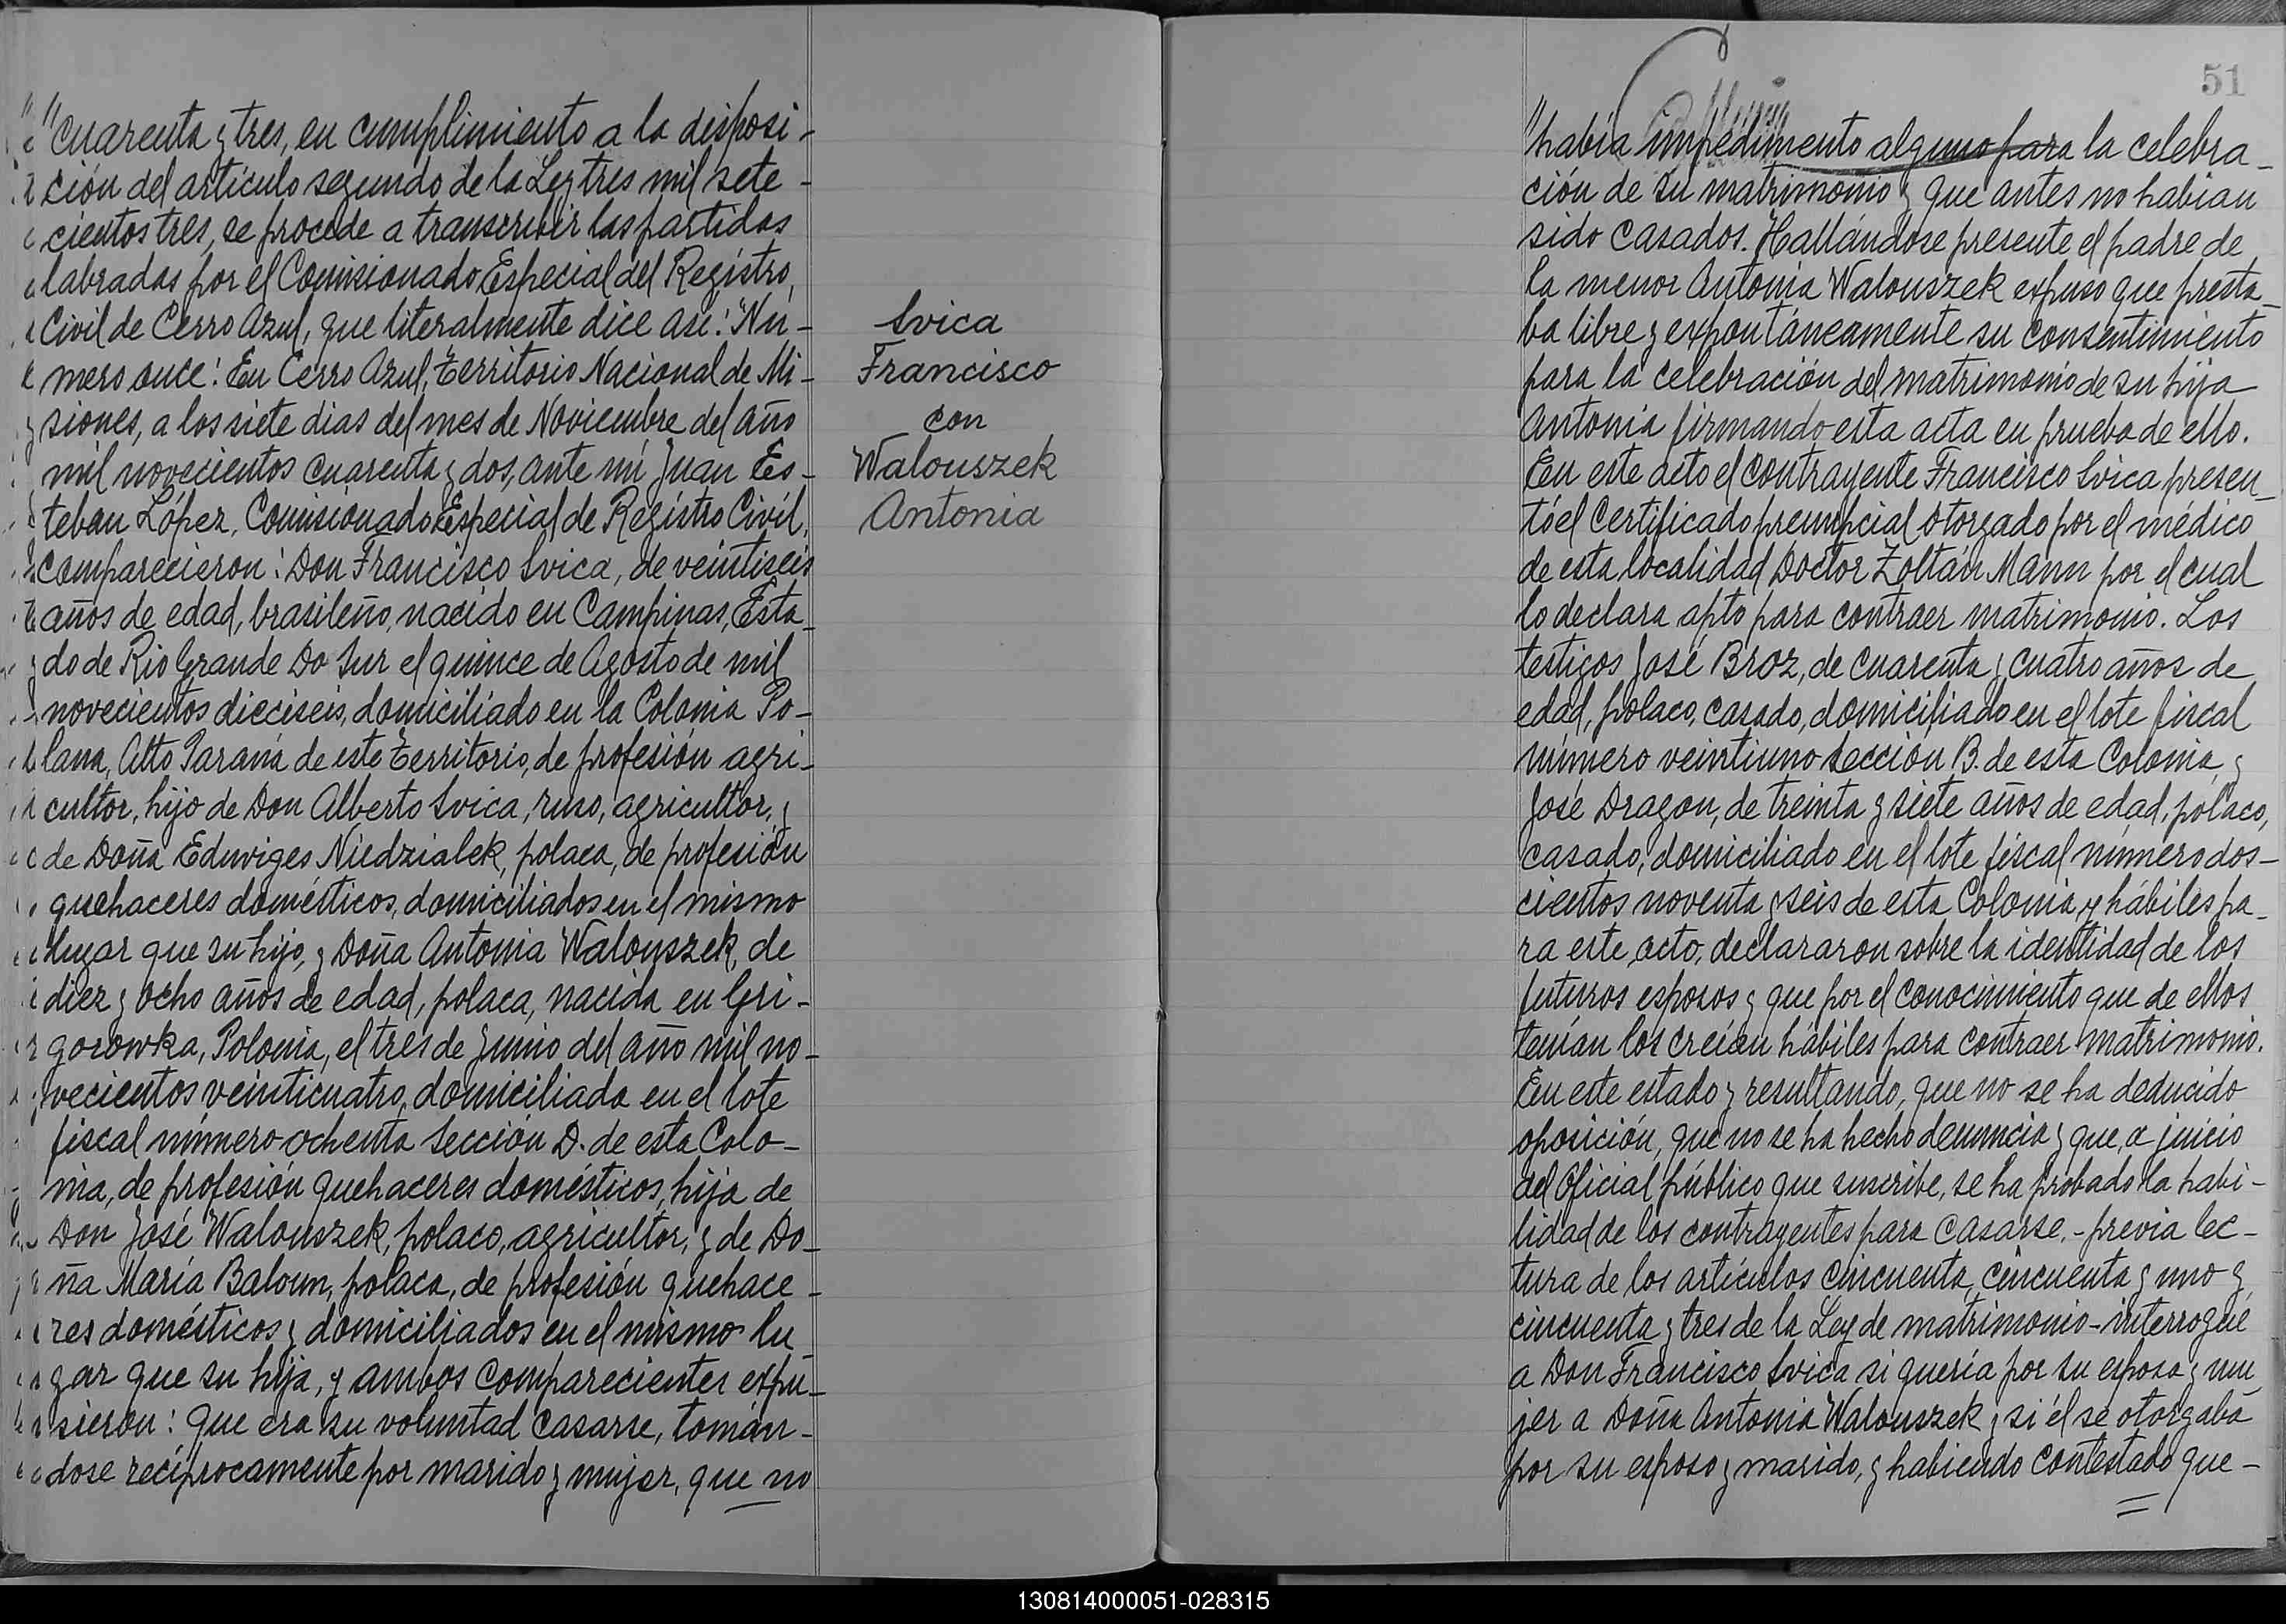 "cuarenta y tres, en cumplimiento a la disposi-
ción del artículo segundo de la Ley tres mil sete-
cientos tres, se procede a transcribir las partidas
labradas por el Comisionado Especial del Registro,
Civil de Cerro Azul, que literalmente dice así: "Nú-
mero once: En Cerro Azul, Territorio Nacional de Mi-
siones, a los siete dias del mes de Noviembre del año
mil novecientos cuarenta y dos, ante mí Juan Es-
teban López, Comisionado Especial de Registro Civil,
comparecieron: Don Francisco Svica, de veintiseis
años de edad, brasileño, nacido en Campinas, Esta-
do de Rio Grande Do Sur el quince de Agosto de mil
novecientos dieciseis, domiciliado en la Colonia Po-
lana, Alto Paraná de este Territorio, de profesión agri-
cultor, hijo de Don Alberto Svica, ruso, agricultor, y
de Doña Eduviges Niedzialek, polaca, de profesión
quehaceres domésticos, domiciliados en el mismo
lugar que su hijo, y Doña Antonia Walouszek, de
diez y ocho años de edad, polaca, nacida en Gri-
gorowka, Polonia, el tres de Junio del año mil no-
vecientos veinticuatro, domiciliada en el lote
fiscal número ochenta Sección D. de esta Colo-
nia, de profesión quehaceres domésticos, hija de
Don José Walouszek, polaco, agricultor, y de Do-
ña María Baloun, polaca, de profesión quehace-
res domésticos y domiciliados en el mismo lu-
gar que su hija, y ambos comparecientes expu-
sieron: Que era su voluntad casarse, tomán-
dose recíprocamente por marido y mujer, que no
Svica
Francisco
con
Walouszek
Antonia
51
"había impedimento alguno para la celebra-
ción de su matrimonio y que antes no habían
sido casados. Hallándose presente el padre de
la menor Antonia Walouszek expuso que presta-
ba libre y expontáneamente su consentimiento
para la celebración del matrimonio de su hija
Antonia firmando esta acta en prueba de ello.
En este acto el contrayente Francisco Svica presen-
tó el Certificado prenupcial otorgado por el médico
de esta localidad Doctor Zoltán Mann por el cual
lo declara apto para contraer matrimonio. Los
testigos José Broz, de cuarenta y cuatro años de
edad, polaco, casado, domiciliado en el lote fiscal
número veintiuno Sección B. de esta Colonia y
José Dragon, de treinta y siete años de edad, polaco,
casado, domiciliado en el lote fiscal número dos-
cientos noventa y seis de esta Colonia y hábiles pa-
ra este acto, declararon sobre la identidad de los
futuros esposos y que por el conocimiento que de ellos
tenían los creían hábiles para contraer matrimonio.
En este estado y resultando, que no se ha deducido
oposición, que no se ha hecho denuncia y que, a juicio
del Oficial público que suscribe, se ha probado la habi-
lidad de los contrayentes para casarse.- previa lec-
tura de los artículos cincuenta, cincuenta y uno y
cincuenta y tres de la Ley de matrimonio - interrogué
a Don Francisco Svica si quería por su esposa y mu-
jer a Doña Antonia Walouszek y si él se otorgaba
por su esposo y marido, y habiendo contestado que-
130814000051-028315